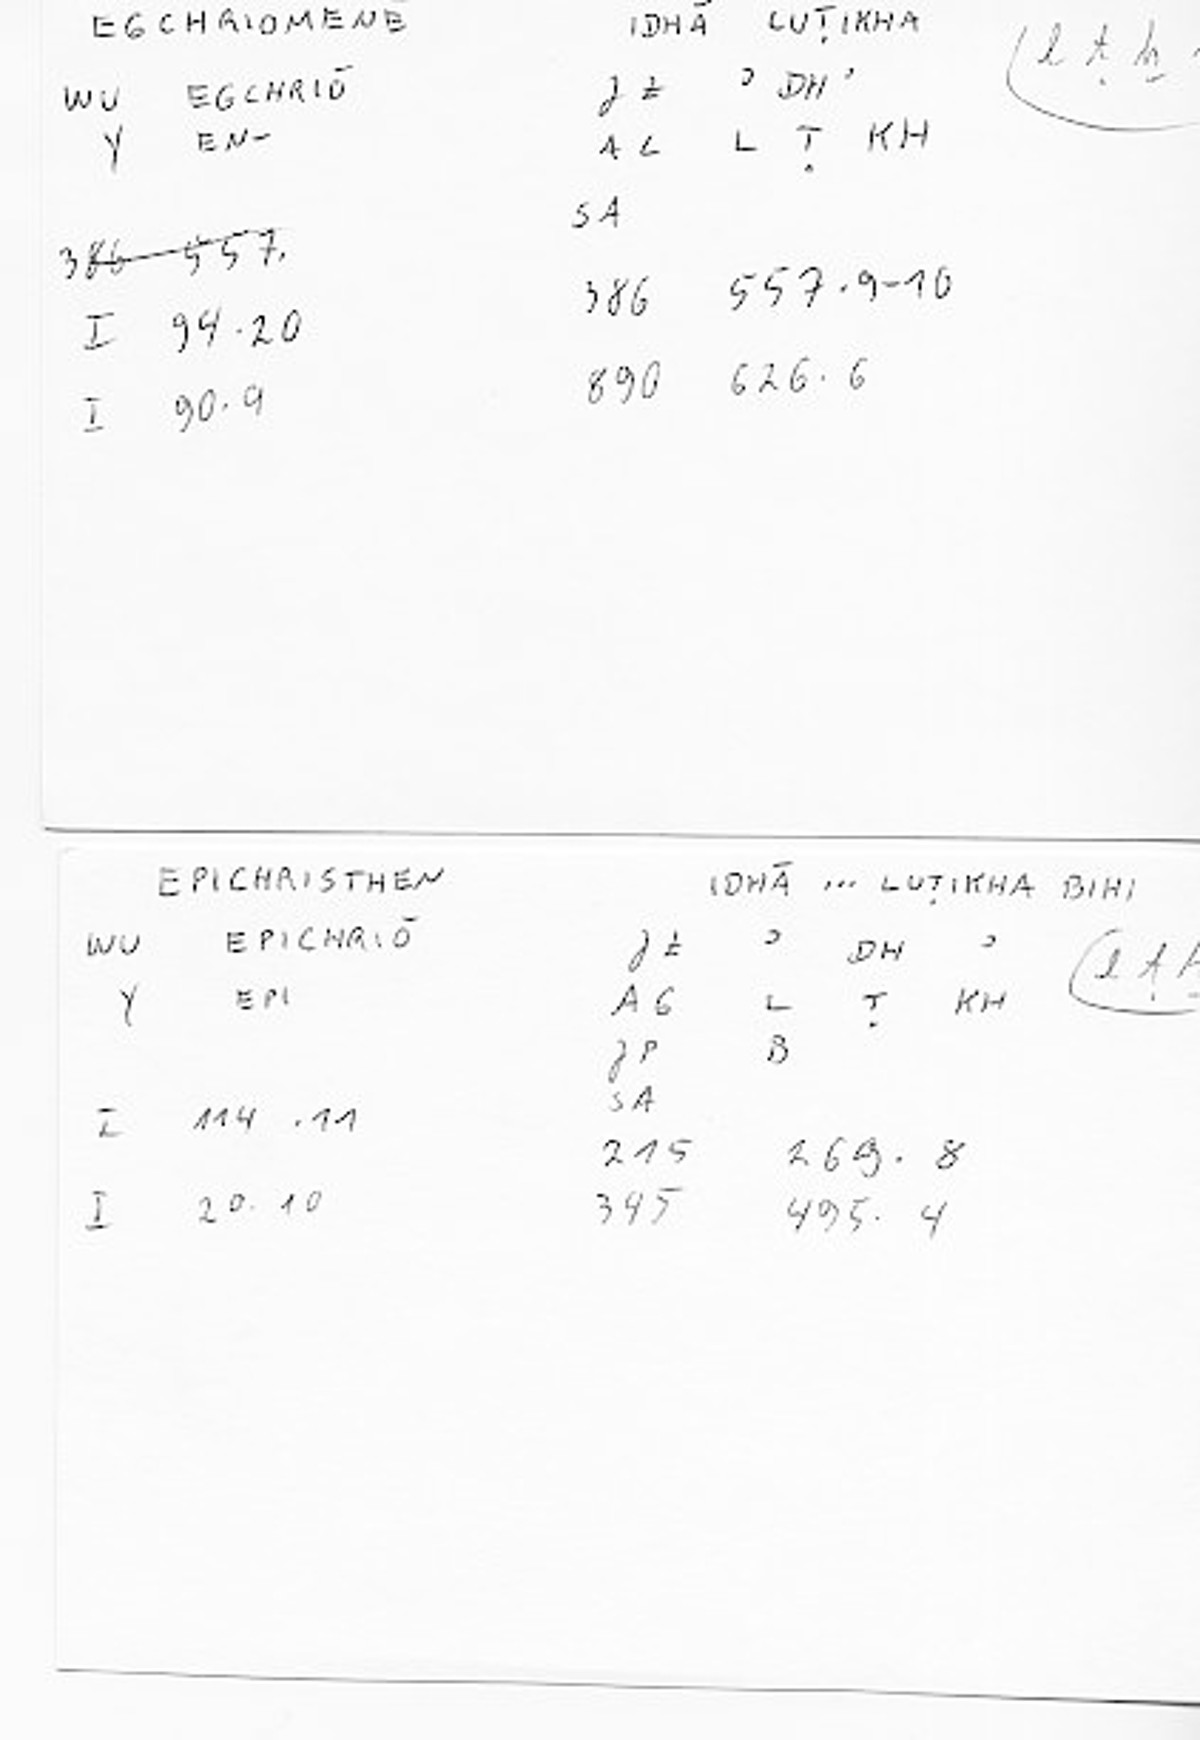 EGCHRIOMENĒ IDHĀ LUṬIKHA
WU EGCHRIŌ ʾ DH ʾ
Y EN- L Ṭ KH
SA
386 557.
386 557.9-10
I 94.20
890 626.6
I 90.9
EPICHRISTHEN IDHĀ ... LUṬIKHA BIHI
WU EPICHRIŌ ʾ DH ʾ
Y EPI AG L Ṭ KH
JP B
SA
I 114.11
215 269.8
I 20.10 345 495.4